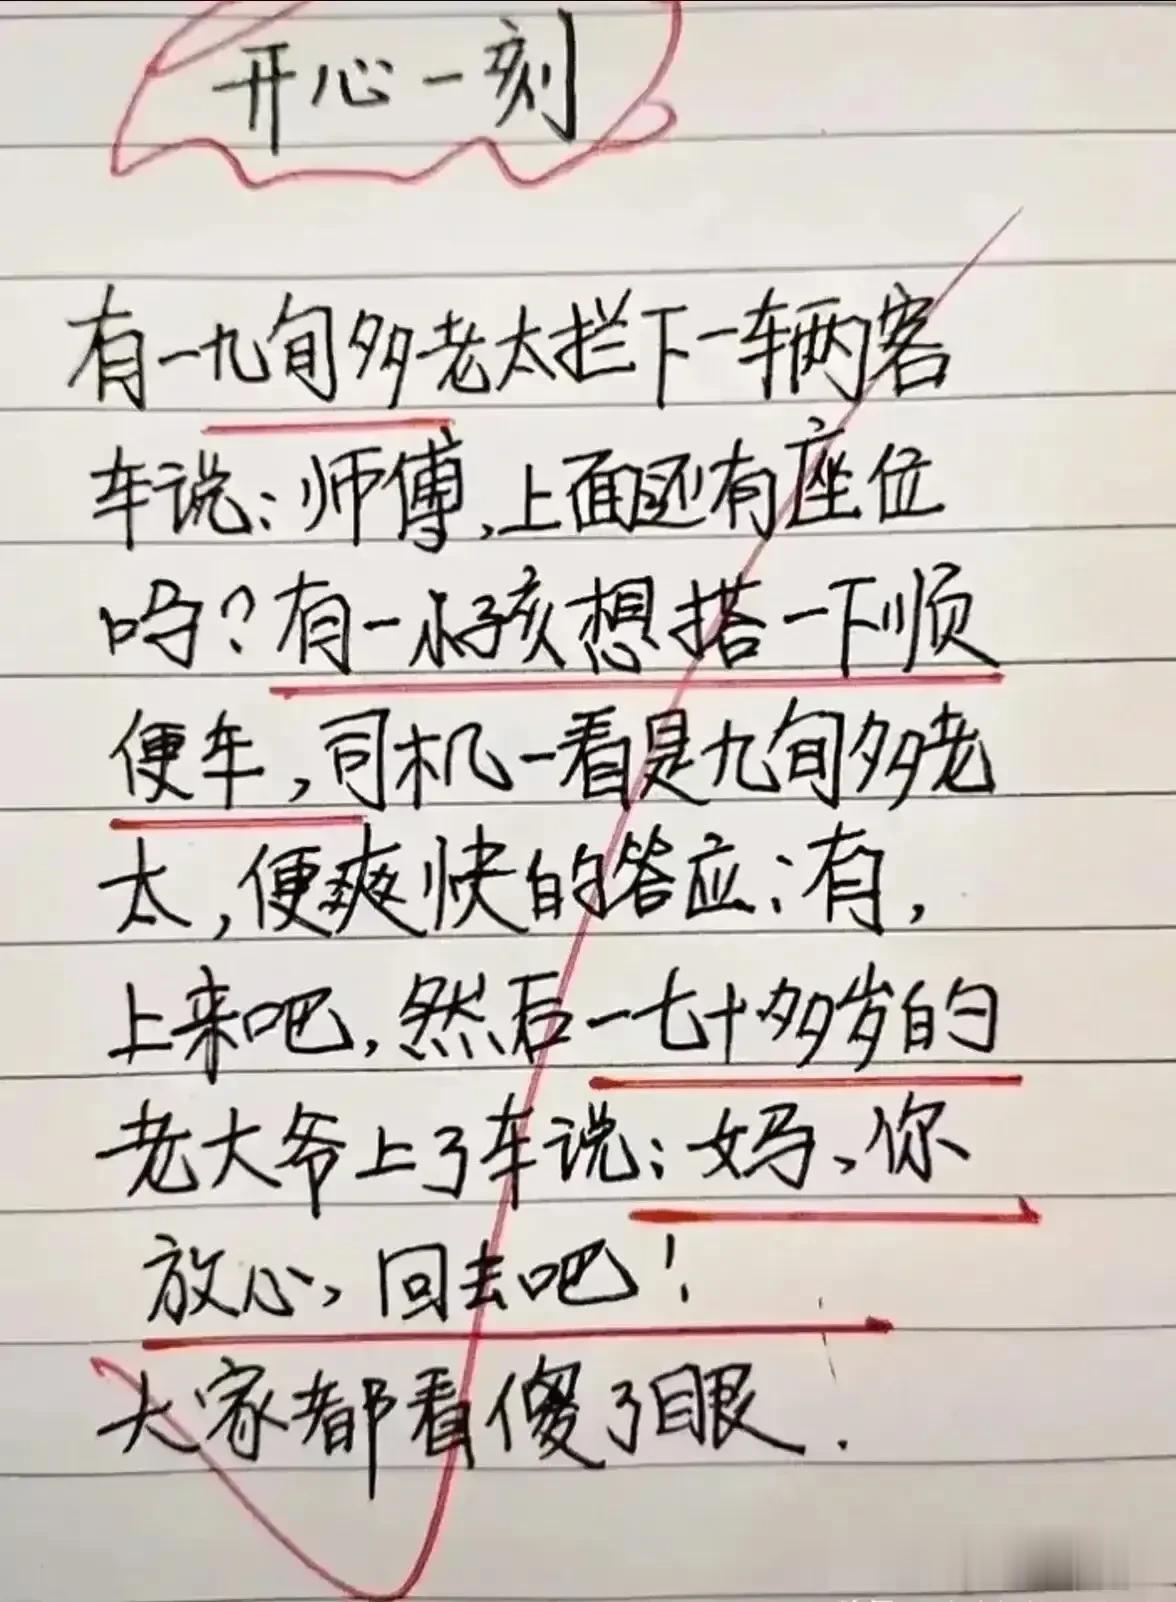 开心一刻
有一九旬多老太拦下一辆客
车说：师傅，上面还有座位
吗？有一小孩想搭一下顺
便车，司机一看是九旬多老
太，便爽快的答应：有，
上来吧，然后一七十多岁的
老大爷上了车说：妈、你
放心，回去吧！
大家都看傻了眼.